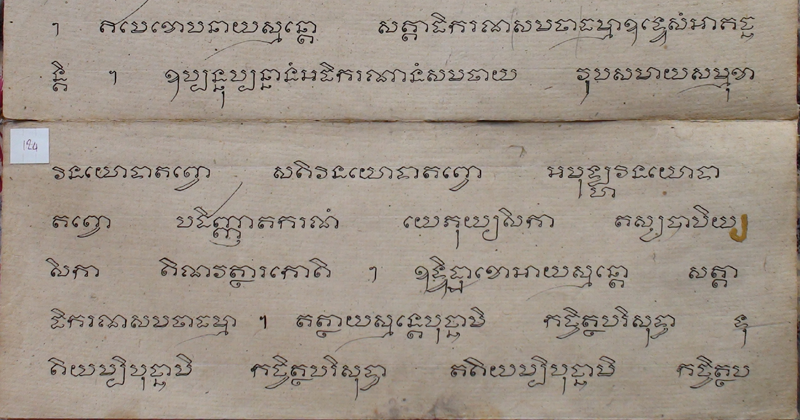 ៗ ឥមេខោបនាយស្មន្តោ សត្តាធិករណសមថាធម្មាឧទ្ទេសំអាគច្ឆ
ន្តិ ៗ ឧប្បន្នុប្បន្នានំអធិករណានំសមថាយ វូបសមាយសម្មុខា
124
វិនយោទាតព្វោ សតិវិនយោទាតព្វោ អមុឡ្ហវិនយោទា
តព្វោ បដិញ្ញាតករណំ យេភុយ្យសិកា តស្សបាបិយ្យ
សិកា តិណវត្ថារកោតិ ៗ ឧទ្ទិដ្ឋាខោអាយស្មន្តោ សត្តា
ធិករណសមថាធម្មា ៗ តត្ថាយស្មន្តេបុច្ឆាមិ កច្ចិត្ថបរិសុទ្ធា ទុ
តិយម្បិបុច្ឆាមិ កច្ចិត្ថបរិសុទ្ធា តតិយម្បិបុច្ឆាមិ កច្ចិត្ថប